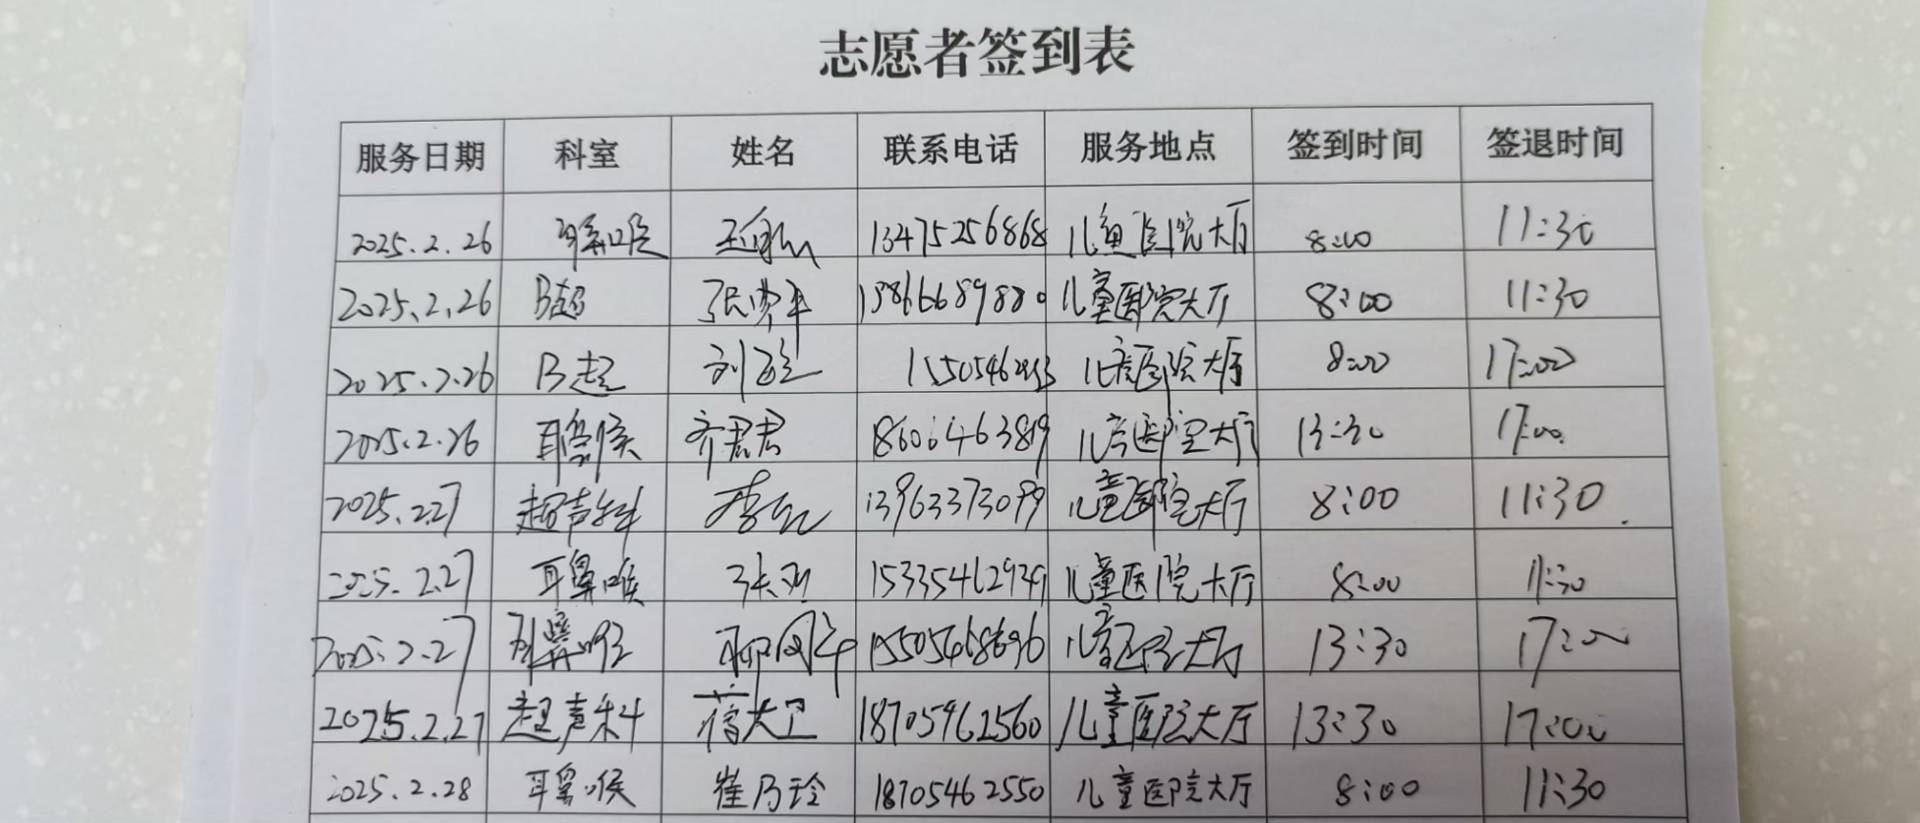 志愿者签到表
服务日期 科室 姓名 联系电话 服务地点 签到时间 签退时间
2025.2.26 耳鼻喉 13475256868 儿童医院大厅 8:00 11:30
2025.2.26 B超 13866689880 儿童医院大厅 8:00 11:30
2025.2.26 B超 儿童医院大厅 8:00 17:00
2025.2.26 耳鼻喉 齐君君 18606463819 儿童医院大厅 13:30 17:00
2025.2.27 超声科 13963373099 儿童医院大厅 8:00 11:30
2025.2.27 耳鼻喉 15335462939 儿童医院大厅 8:00 11:30
2025.2.27 耳鼻喉 15505468696 儿童医院大厅 13:30 17:00
2025.2.27 超声科 大卫 18705462560 儿童医院大厅 13:30 17:00
2025.2.28 耳鼻喉 崔乃玲 18705462550 儿童医院大厅 8:00 11:30